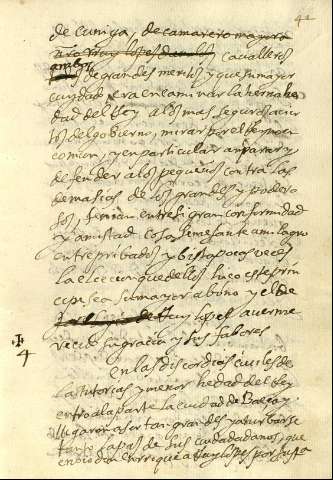 42
de cuniga, de camarero mayor a
Ruy lopes davalos cavalleros
ambos
de grandes meritos y que su mayor
cuydado era encaminar la
dad del Rey a los mas seguros acier
tos del gobierno, mirar por el bien
comun, y en particular amparar y
defender a los pequeños contra las
demasias de los grandes y podero
sos, tenian entre si gran conformidad
y amistad cosa semejante a milagro
entre pribados y bista pocas veces
la eleccion que dellos hico este prin
cipe sea su mayor abono y el de
Ruy lopes averme
recido su gracia y sus fabores
4
En las discordias civiles de
las tutorias y menor hedad del Rey
entro a la parte la ciudad de Baeça y
llegaron a ser tan grandes y a turbarse
tanto la pas de sus ciudadadanos, que
enbio don enrrique a Ruy lopes por justa